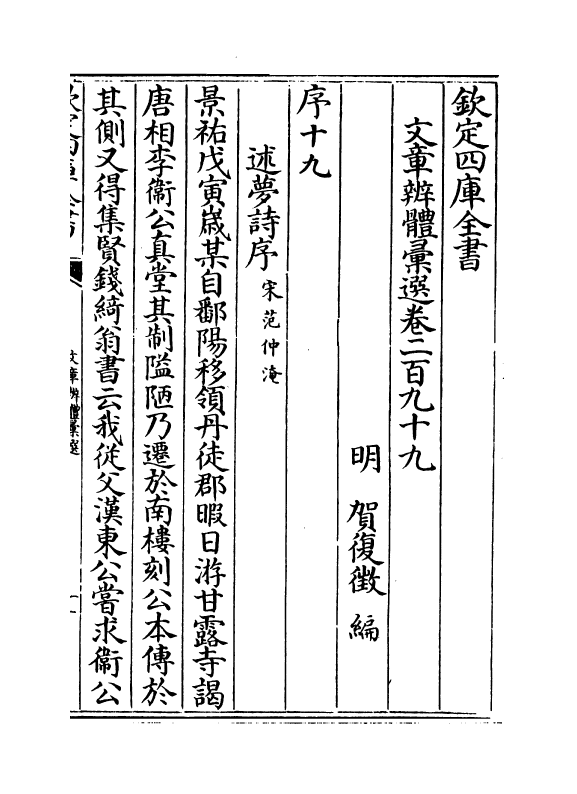 欽定四庫全書
文章辨體彙選卷二百九十九
明 賀復徵 編
序十九
述夢詩序 宋范仲淹
景祐戊寅嵗某自鄱陽移領丹徒郡暇日游甘露寺謁
唐相李衞公真堂其制隘陋乃遷於南樓刻公本傳於
其側又得集賢錢綺翁書云我從父漢東公嘗求衞公
欽定四庫全書
文章辨體彙選
一